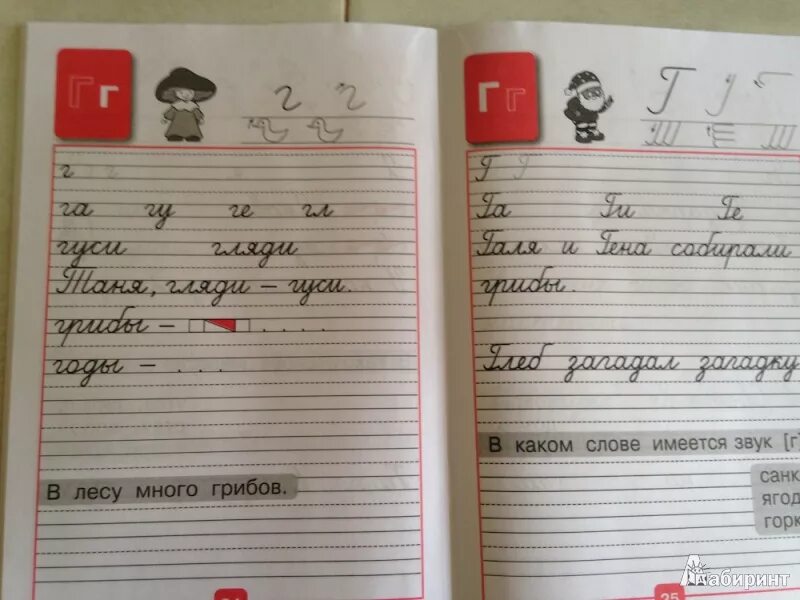 Г г
г г
г г г
га гу ге гл
гуси гляди
Таня, гляди – гуси.
грибы – . . . .
годы – . . .
В лесу много грибов.
Г г
Г
Г Г
Га Ги Ге
Галя и Гена собирали
грибы.
Глеб загадал загадку
В каком слове имеется звук [г]
санк
ягод
горк
25
Лабиринт